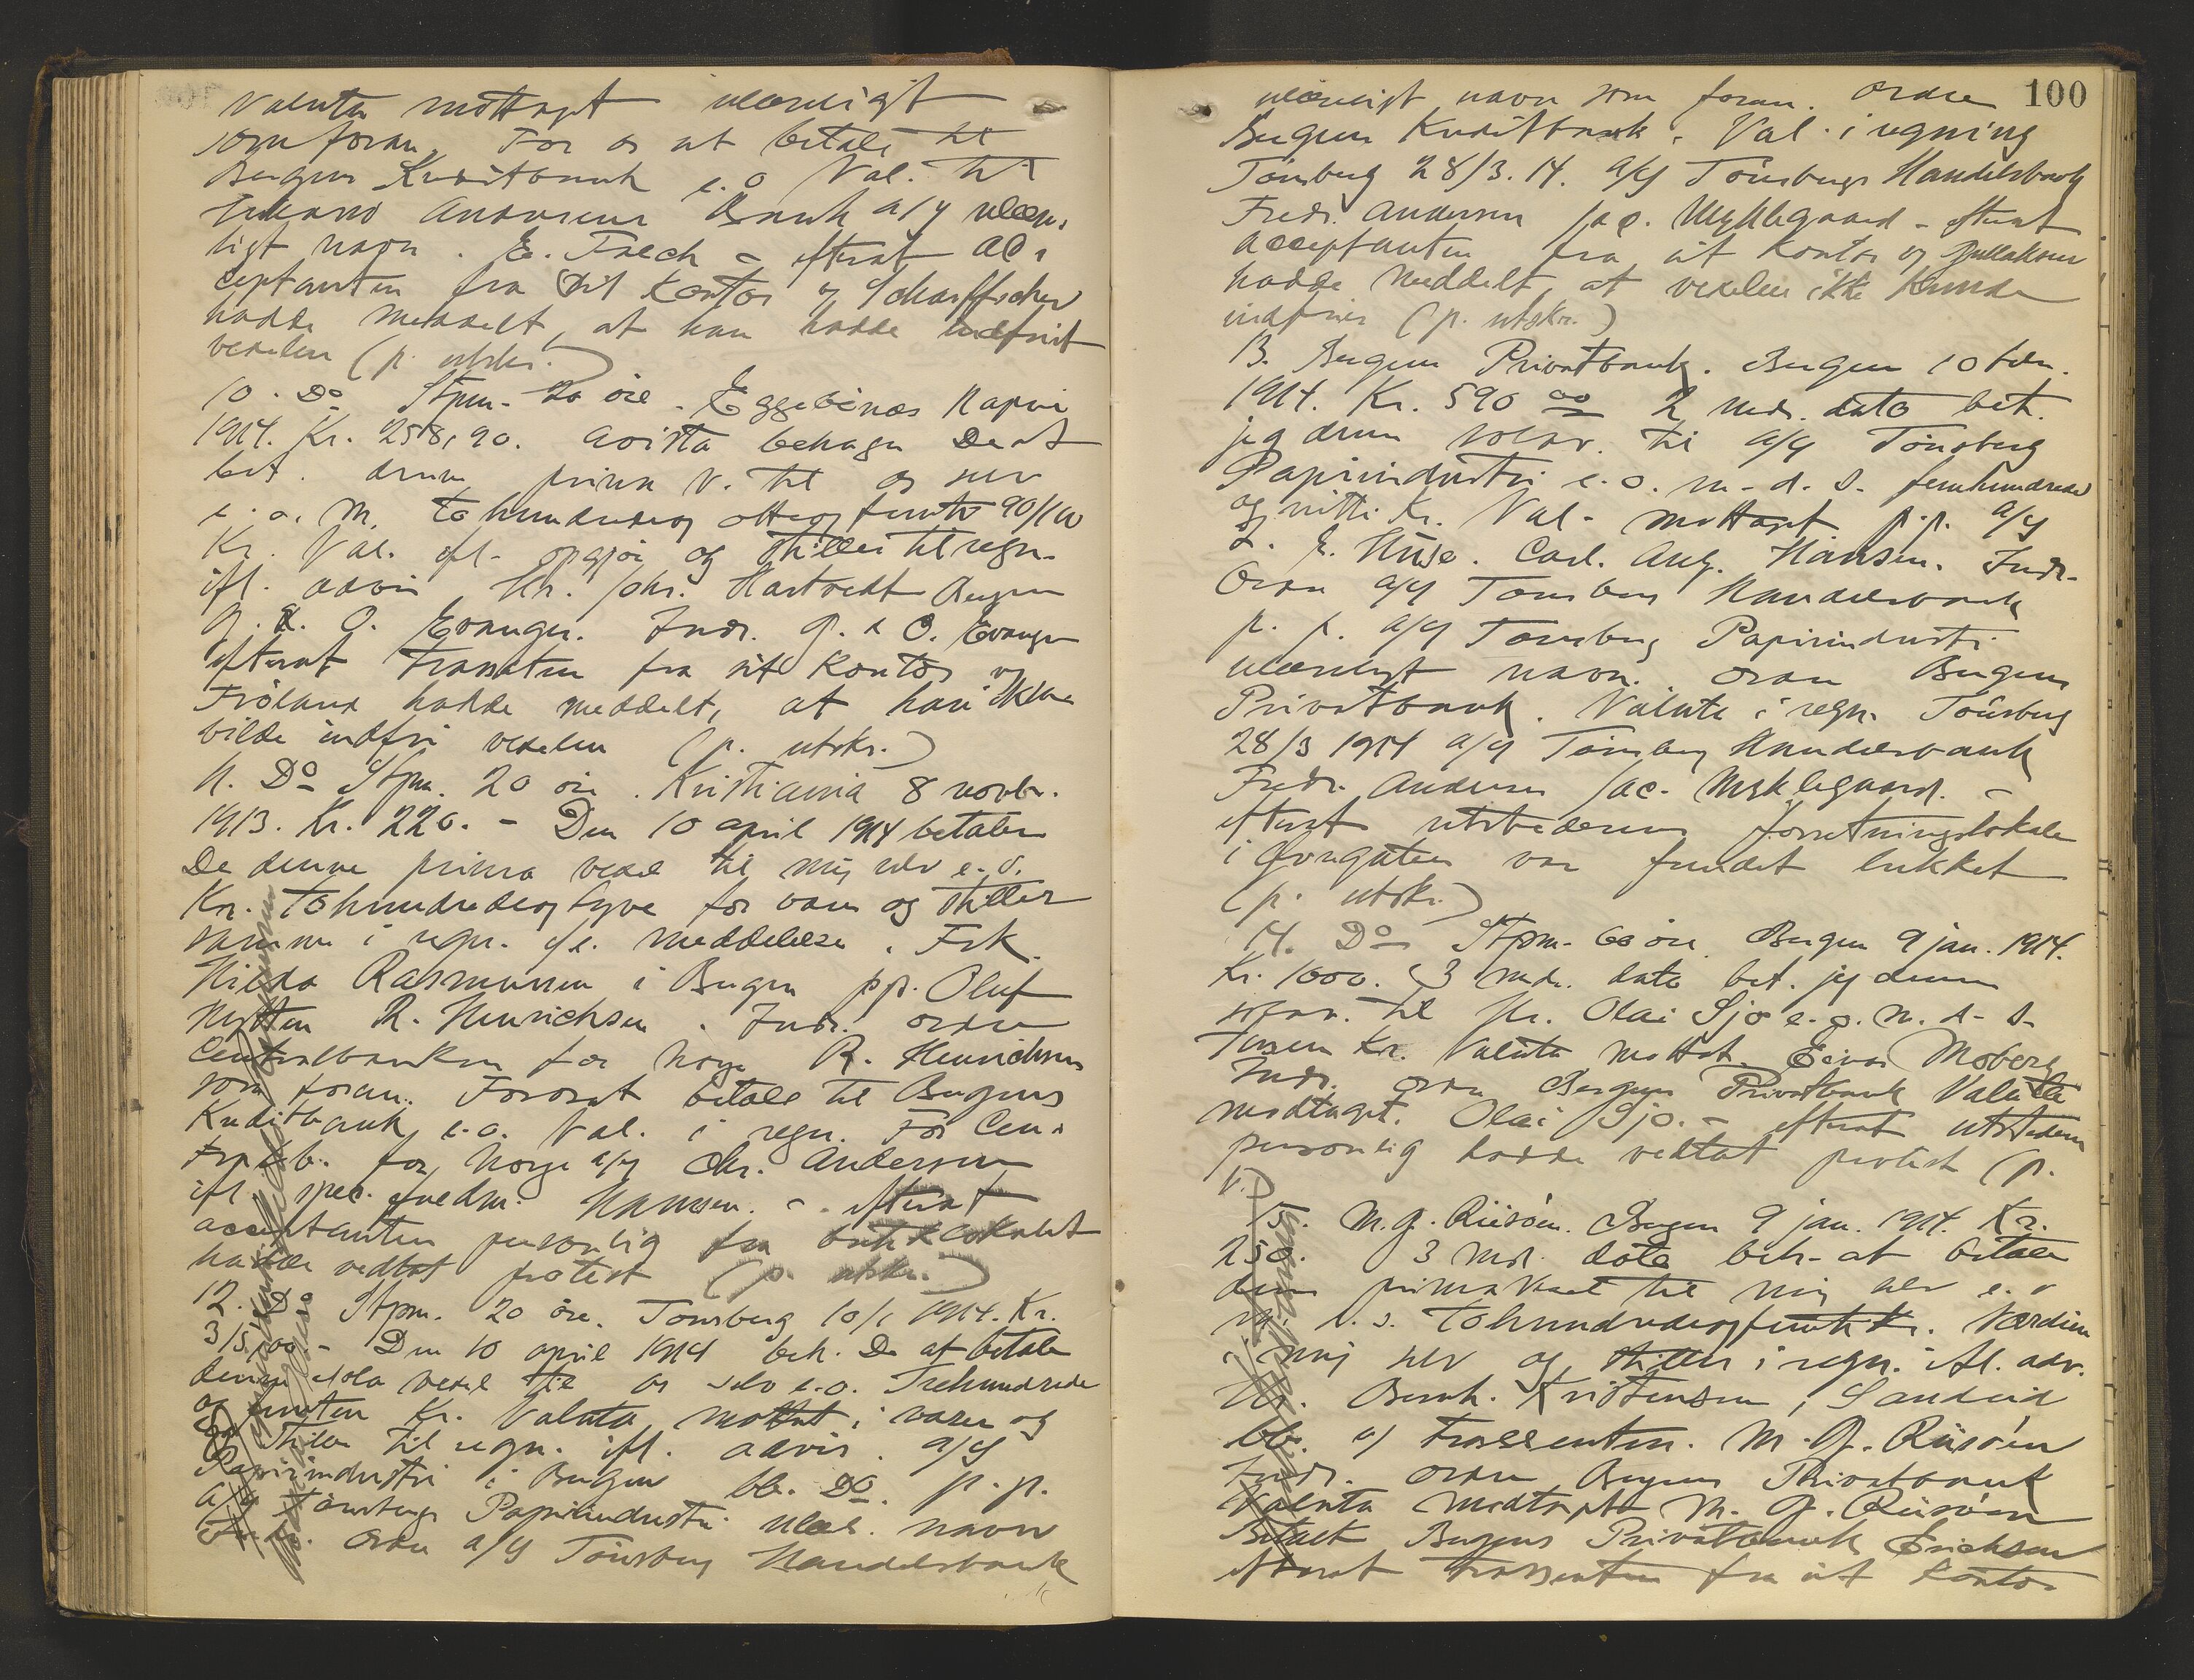 Valuta mottaget ulæseligt
som foran. For os at betale til
Bergens Kreditbank e.o. Val. til
Andresens Bank a/s ulæse-
ligt navn. E. Frech - efterat ac-
ceptanten fra sit kontor og
hadde meddelt, at han hadde indfriet
vexelen (p. utskr.)
10. Do Stpm. 20 øre. Eggebönæs
1914. Kr. 258,90. avista behager De at
bet. denne prima v. til os selv
e. o. m. tohundredeog otteogfemti 90/100
Kr. Val. ifl. opgjör og stilles til regn.
ifl. advis Hr. Johs. Hartvedt Bergen
G. & O. Evanger. Indr. G. & O. Evanger
efterat trassaten fra sit kontor v/
Fröland hadde meddelt, at han ikke
vilde indfri vexelen (p. utskr.)
11. Do Stpm. 20 öre. Kristiania 8 novbr.
1913. Kr. 220. - Den 10 april 1914 betaler
De denne prima vexel til mig selv e.o.
Kr. Tohundredeogtyve for varer og stiller
samme i regn. ifl. meddelelse. Frk.
Hilda Rasmussen i Bergen pp. Oluf
R. Henrichsen. Indr. ordre
Centralbanken for Norge R. Henrichsen
som foran. For os at betale til Bergens
Kreditbank e.o. Val. i regn. For Cen-
tralb. for Norge a/s Chr. Andersen
ifl. spec. Hansen. - efterat
acceptanten personlig fra butiklokalet
hadde vedtat protest (p. utskr.)
12. Do Stpm. 20 öre. Tönsberg 10/1 1914. Kr.
315,00. - Den 10 april 1914 beh. De at betale
denne sola vexel til os selv e.o. Trehundrede
og femten Kr. Valuta mottat i varer og
stilles til regn. ifl. advis. a/s
Papirindustri i Bergen bb. Do. p.p.
a/s Tönsbergs Papirindustri ulæs. navn
Ordre a/s Tönsberg Handelsbank
100
ulæseligt navn som foran. Ordre
Bergens Kreditbank. Val. i regning
Tönsberg 28/3.14. a/s Tönsbergs Handelsbank
Fredr. Andersen Jac. Myklegaard - efterat
acceptanten fra sit kontor v/
hadde meddelt, at vexelen ikke kunde
indfries (p. utskr.)
13. Bergens Privatbank. Bergen 10 febr.
1914. Kr. 590 00 2 mdr. dato bet.
jeg denne solav. til a/s Tönsberg
Papirindustri e.o. m.d.s. femhundrede
og nitti Kr. Val. mottaget p.p. a/s
Carl. Aug. Hansen. Indr.
Ordre a/s Tönsberg Handelsbank
p. p. a/s Tönsberg Papirindustri
ulæseligt navn. Ordre Bergens
Privatbank. Valuta i regn. Tönsberg
28/3 1914 a/s Tönsberg Handelsbank
Fredr. Andersen Jac. Myklegaard. -
efterat utstederens forretningslokale
i var fundet lukket
(p. utskr.)
14. Do Stpm. 60 öre. Bergen 9 jan. 1914.
Kr. 1000. 3 mdr. dato bet. jeg denne
solav. til Hr. Olai Sjo e.o. m.d.s.
Tusen Kr. Valuta mottat. Einar Moberg
Indr. ordre Bergens Privatbank Valuta
modtaget. Olai Sjo. - efterat utstederen
personlig hadde vedtat protest (p.
u.)
15. M.G. Riisöen. Bergen 9 jan. 1914. Kr.
250. 3 mdr. dato beh. at betale
denne primavexel til mig selv e.o
m. d. s. Tohundredeogfemti Kr. Værdien
i mig selv og stilles i regn. ifl. adv.
Hr. Bernh. Kristensen, Sandeid
bb. a/ Trassenten. M.G. Riisöen
Indr. ordre Bergens Privatbank
Valuta modtaget M.G. Riisöen
Betalt Bergens Privatbank Erichsen
efterat Trassenten fra sit kontor